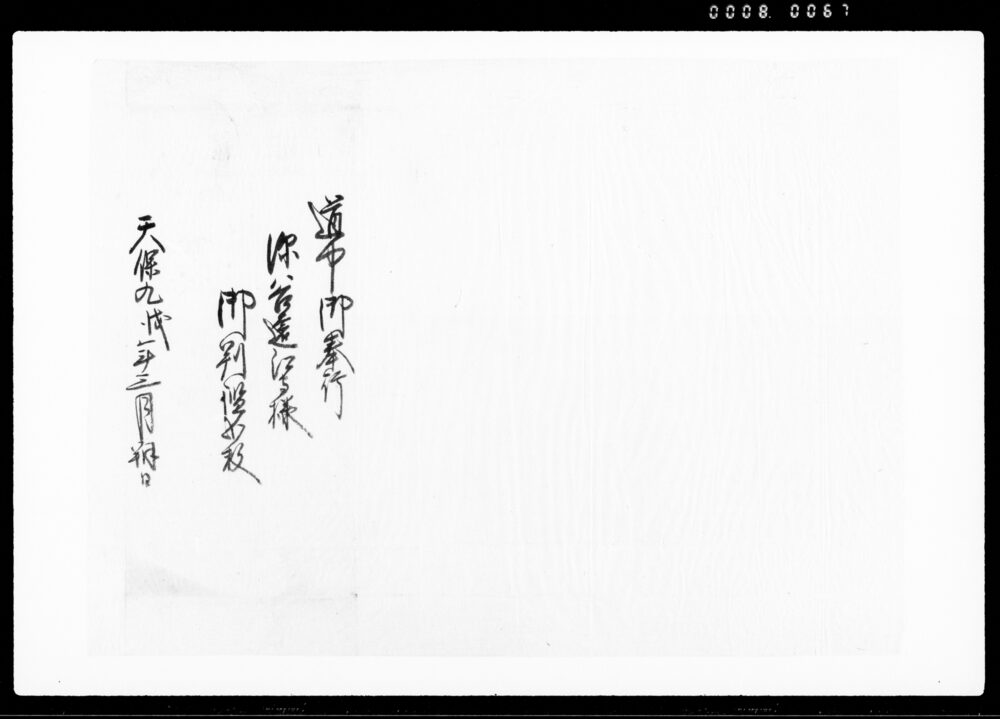 0008 0067
道中御奉行
深谷遠江守様
御判鑑弐枚
天保九戌年三月朔日